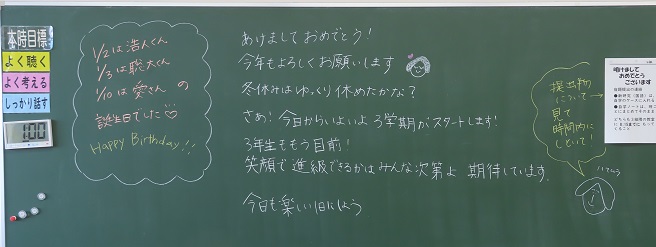 本時目標
よく聴く
よく考える
しっかり話す
100
1/2は浩人くん
1/3は聡太くん
1/10は愛さん の
誕生日でした
Happy Birthday!!
あけまして おめでとう!
今年もよろしくお願いします
冬休みはゆっくり休めたかな?
さぁ!今日からいよいよ3学期がスタートします!
3年生ももう目前!
笑顔で進級できるかはみんな次第よ 期待しています
今日も楽しい1日にしよう
提出物
について
見て
時間内に
しといて!
明けまして
おめでとう
ございます